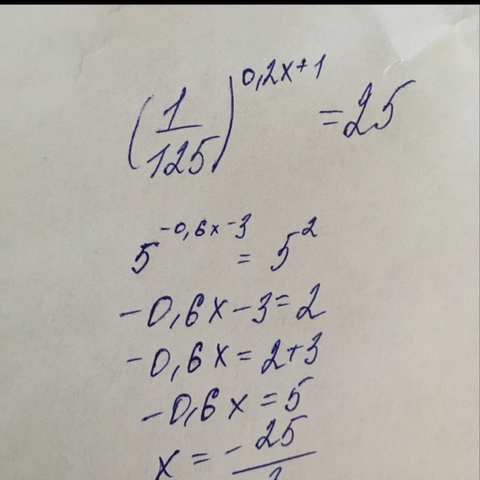 (1/125)^0,2x+1 = 25
5^-0,6x-3 = 5^2
-0,6x-3=2
-0,6x=2+3
-0,6x=5
x=-25/